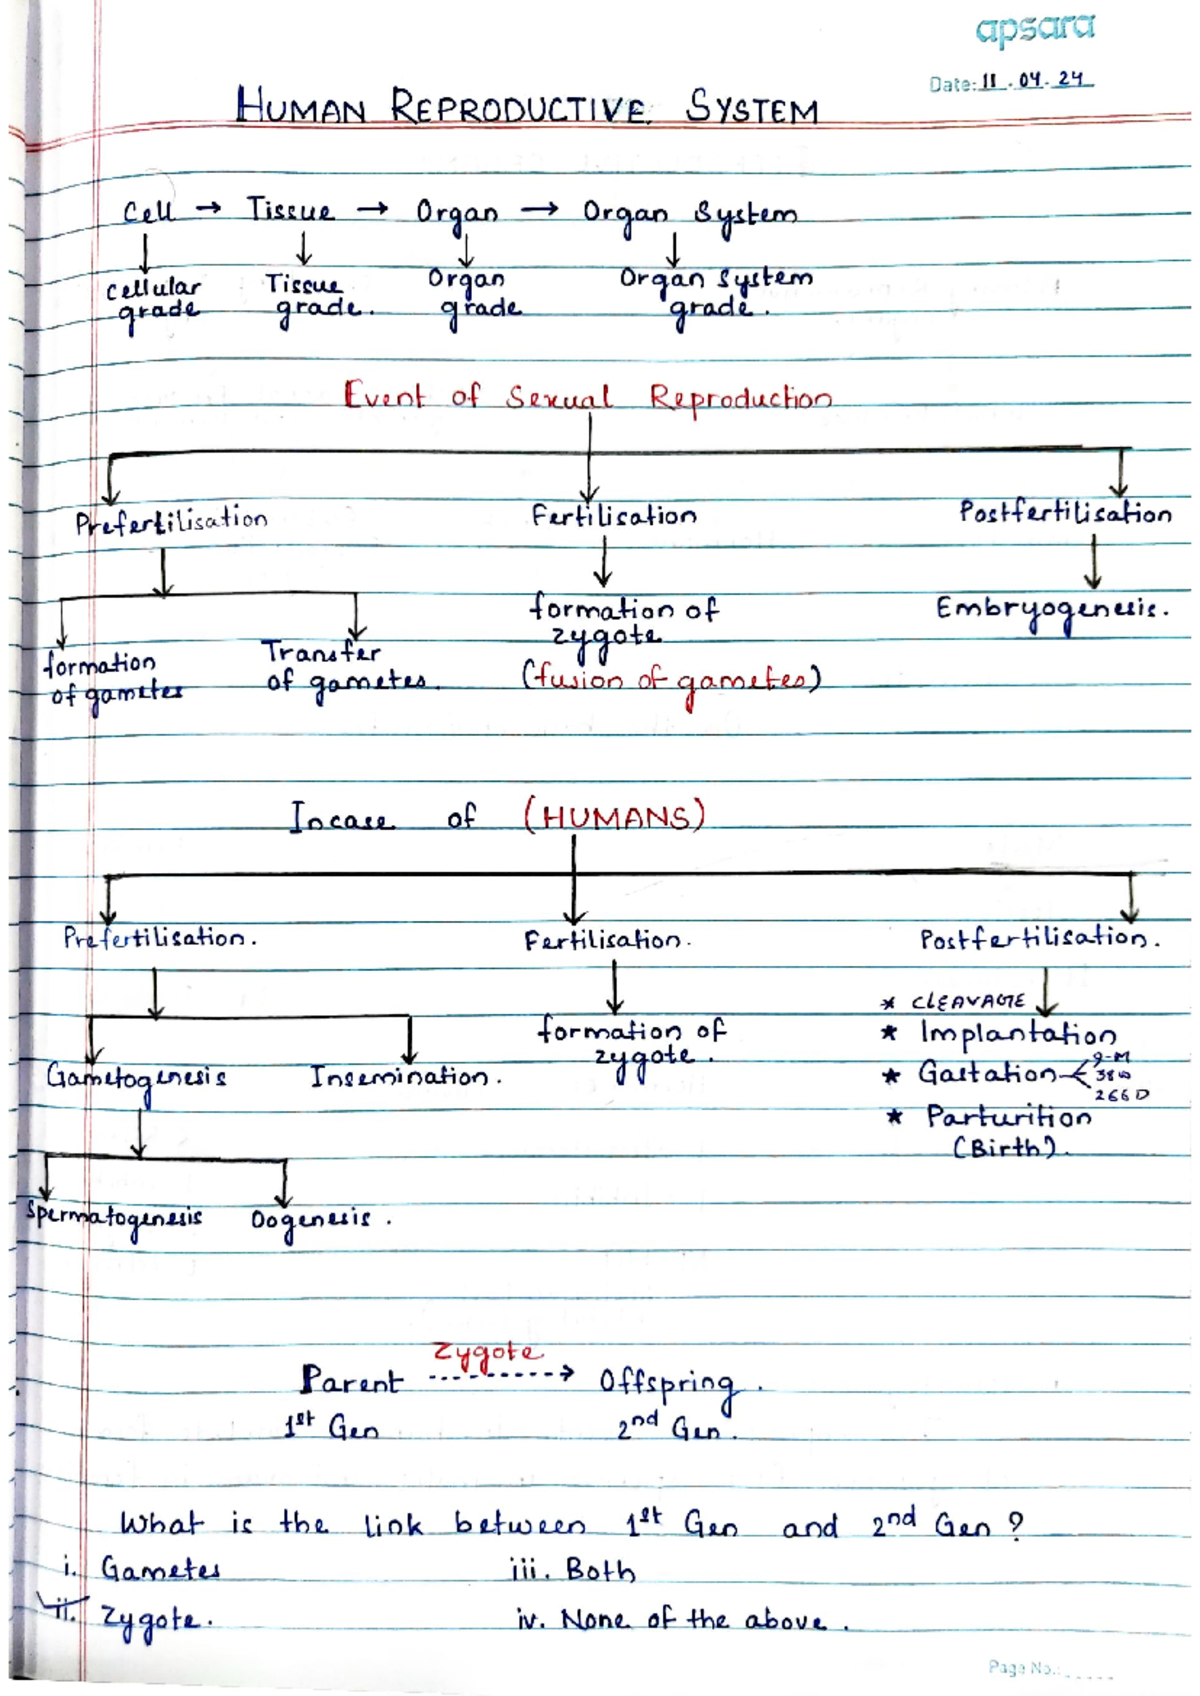 apsara
Date: 11.04.24
HUMAN REPRODUCTIVE SYSTEM
Cell → Tissue → Organ → Organ System
Cellular grade
Tissue grade.
Organ grade
Organ System grade.
Event of Sexual Reproduction
Prefertilisation
Fertilisation
Postfertilisation
formation of gametes
Transfer of gametes.
formation of zygote
(fusion of gametes)
Embryogenesis.
Incase of (HUMANS)
Prefertilisation.
Fertilisation.
Postfertilisation.
Gametogenesis
Insemination.
formation of zygote.
* CLEAVAGE
* Implantation
* Gastation
9-M
38w
266D
* Parturition
(Birth).
Spermatogenesis
Oogenesis.
Zygote
Parent ------→ Offspring.
1st Gen
2nd Gen.
What is the link between 1st Gen and 2nd Gen?
i. Gametes
iii. Both
ii. Zygote.
iv. None of the above.
Page No.: